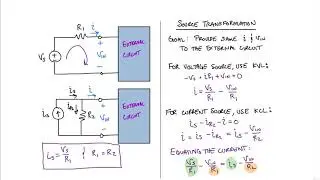 R₁
i
+
Vₛ
Vᵢₙ
-
EXTERNAL
CIRCUIT
i
iₛ
i_R₂
R₂
+
Vᵢₙ
-
EXTERNAL
CIRCUIT
iₛ = Vₛ/R₁ & R₁ = R₂
SOURCE TRANSFORMATION
GOAL: PROVIDE SAME i & Vᵢₙ
TO THE EXTERNAL CIRCUIT
FOR VOLTAGE SOURCE, USE KVL:
-Vₛ + iR₁ + Vᵢₙ = 0
i = Vₛ/R₁ - Vᵢₙ/R₁
FOR CURRENT SOURCE, USE KCL:
iₛ - i_R₂ - i = 0
i = iₛ - i_R₂ = iₛ - Vᵢₙ/R₂
EQUATING THE CURRENT:
Vₛ/R₁ - Vᵢₙ/R₁ = iₛ - Vᵢₙ/R₂